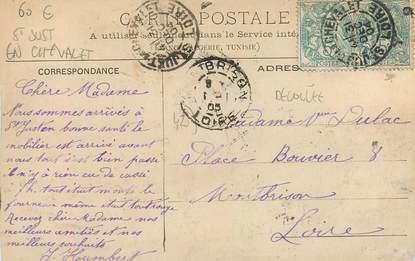 60 €
St JUST
EN CHEVALET
CARTE POSTALE
A utiliser seulement dans le Service intérieur
TUNISIE)
CORRESPONDANCE
ADRESSE
DÉCOLLÉE
42
MONTBRISON
LOIRE
Chère Madame
Nous sommes arrivés à
St Just en bonne santé le
mobilier est arrivé avant
nous tout s'est bien passé
il n'y a rien eu de cassé
tout était
Recevez chère Madame nos
meilleurs amitiés et nos
meilleurs souhaits
J. Humbert
Madame Vve Dulac
Place Bouvier 8
Montbrison
Loire